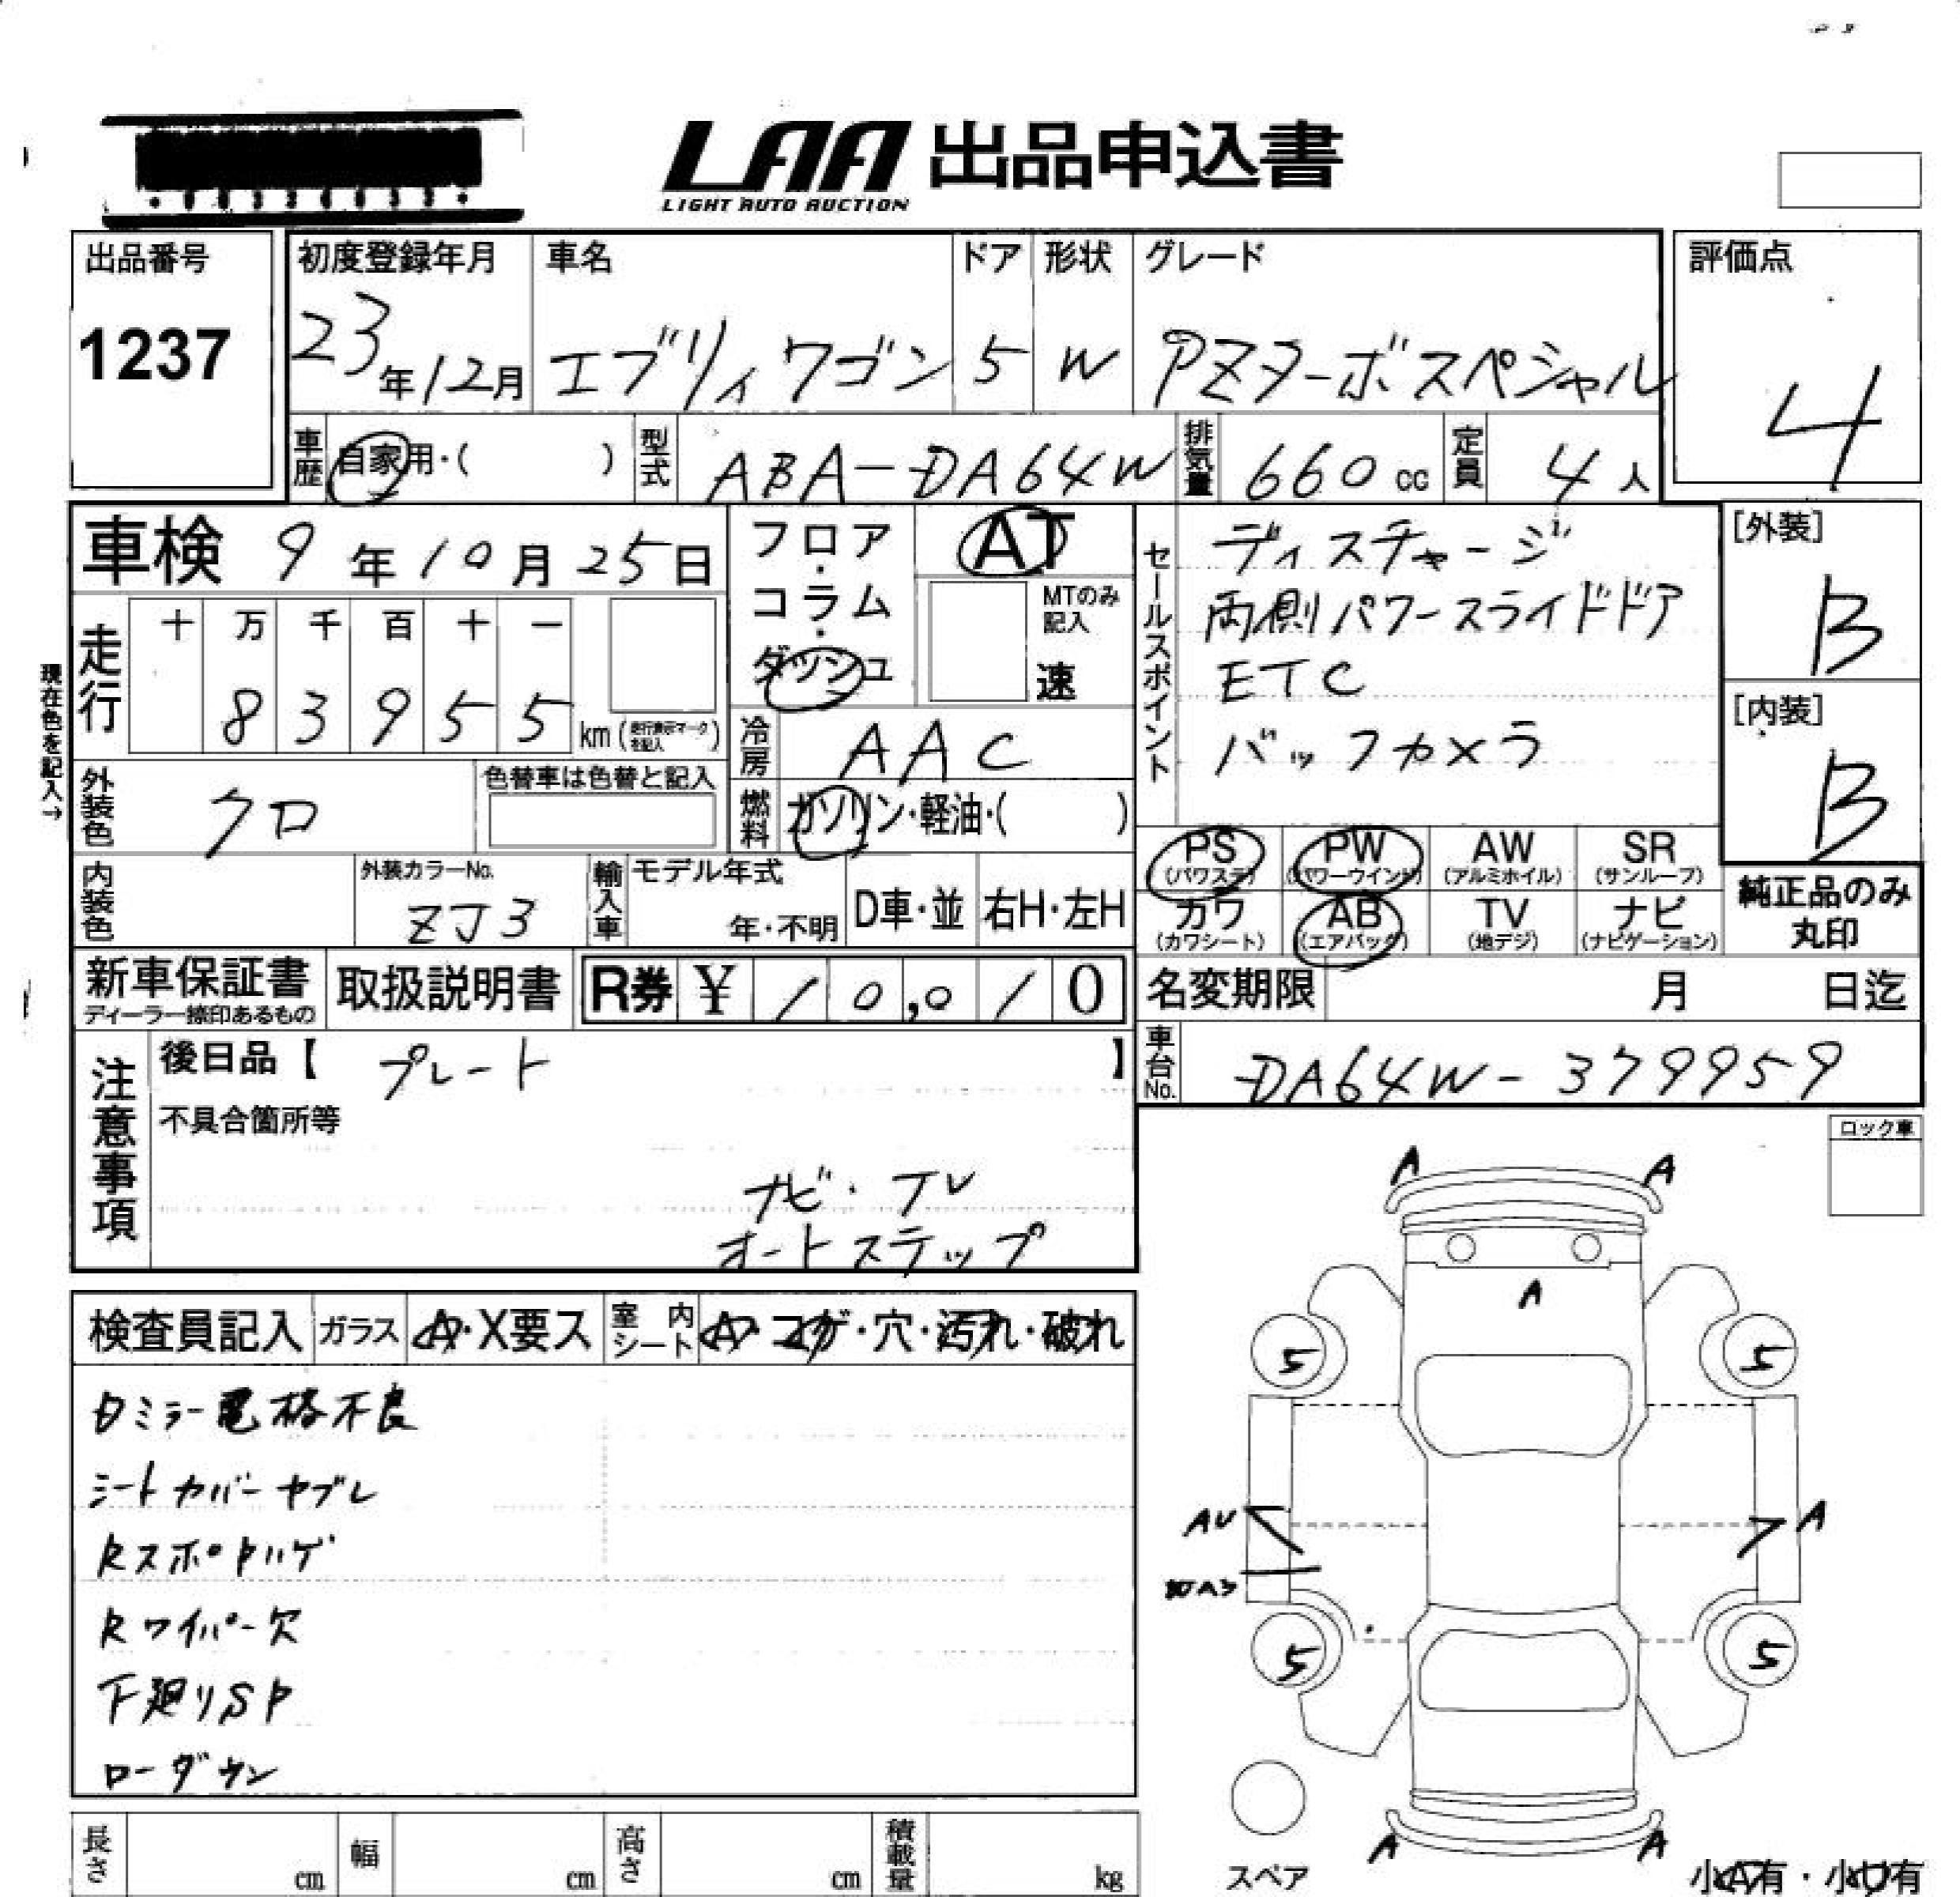 LAA 出品申込書
LIGHT AUTO AUCTION
出品番号 初度登録年月 車名 ドア 形状 グレード 評価点
1237 23年12月 エブリィワゴン 5 W PZターボスペシャル 4
車歴 自家用・( ) 型式 ABA-DA64W 排気量 660cc 定員 4人
車検 9年10月25日 フロア・コラム・ダッシュ AT
MTのみ記入 速
セールスポイント
ディスチャージ
両側パワースライドドア
ETC
バックカメラ
[外装] B
[内装] B
現在色を記入→
走行 十 万 千 百 十 一
8 3 9 5 5 km(走行表示マークを記入)
冷房 AAC
外装色 クロ 色替車は色替と記入 燃料 ガソリン・軽油・( )
PS (パワステ) PW (パワーウインド) AW (アルミホイル) SR (サンルーフ)
内装色 外装カラーNo. ZJ3 輸入車 モデル年式 年・不明 D車・並 右H・左H
カワ (カワシート) AB (エアバッグ) TV (地デジ) ナビ (ナビゲーション)
純正品のみ
丸印
新車保証書 ディーラー捺印あるもの 取扱説明書 R券 ¥ 10,010 名変期限 月 日迄
注意事項 後日品【 プレート 】 車台No. DA64W-379959
不具合箇所等
ナビ・TV
オートステップ
ロック車
検査員記入 ガラス A・X要ス 室内シート A・コゲ・穴・汚れ・破れ
ミラー電格不良
シートカバーヤブレ
Rスポトハゲ
Rワイパー欠
下廻りSP
ローダウン
A A
A
5 5
AU A
5 5
A A
スペア
小A有・小U有
長さ cm 幅 cm 高さ cm 積載量 kg